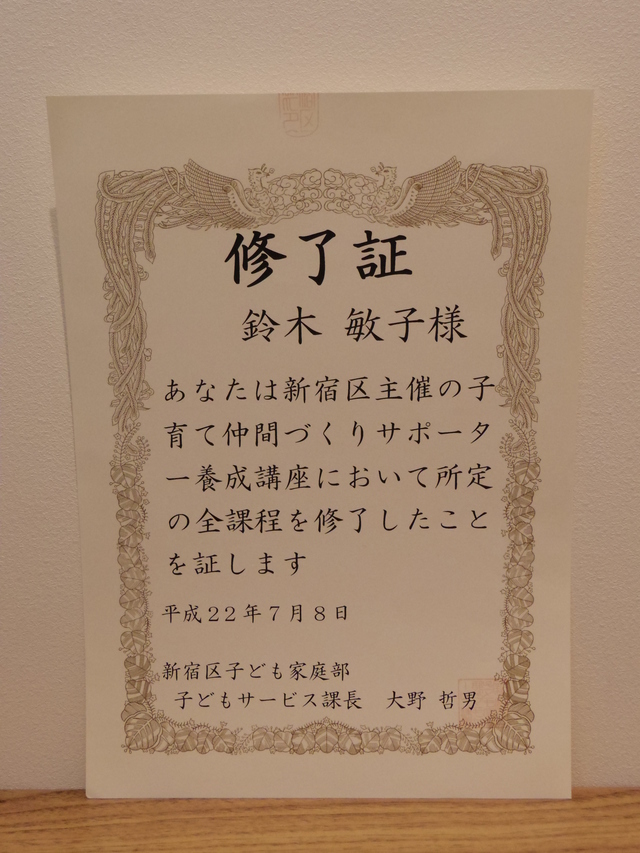 修了証
鈴木 敏子様
あなたは新宿区主催の子
育て仲間づくりサポータ
ー養成講座において所定
の全課程を修了したこと
を証します
平成２２年７月８日
新宿区子ども家庭部
子どもサービス課長 大野 哲男